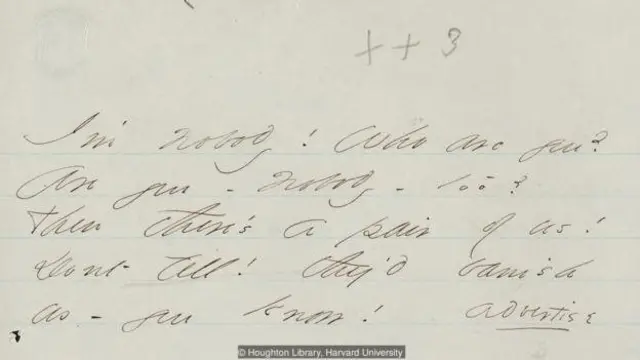 x x 3
I'm Nobody! Who are you?
Are you - Nobody - too?
Then there's a pair of us!
Dont tell! they'd banish
us - you know! advertise
© Houghton Library, Harvard University